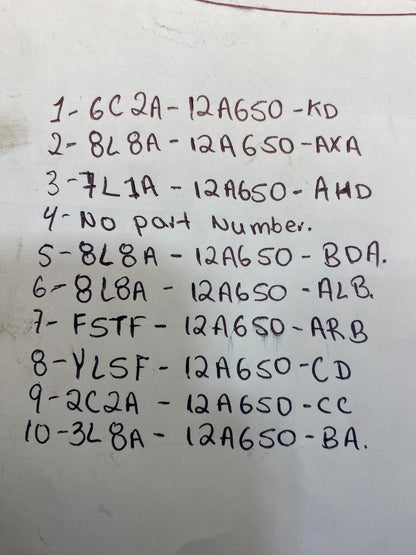 1- 6C2A - 12A650 - KD
2- 8L8A - 12A650 - AXA
3- 7L1A - 12A650 - AHD
4- No part Number.
5- 8L8A - 12A650 - BDA.
6- 8L8A - 12A650 - ALB.
7- FSTF - 12A650 - ARB
8- YL5F - 12A650 - CD
9- 2C2A - 12A650 - CC
10- 3L8A - 12A650 - BA.